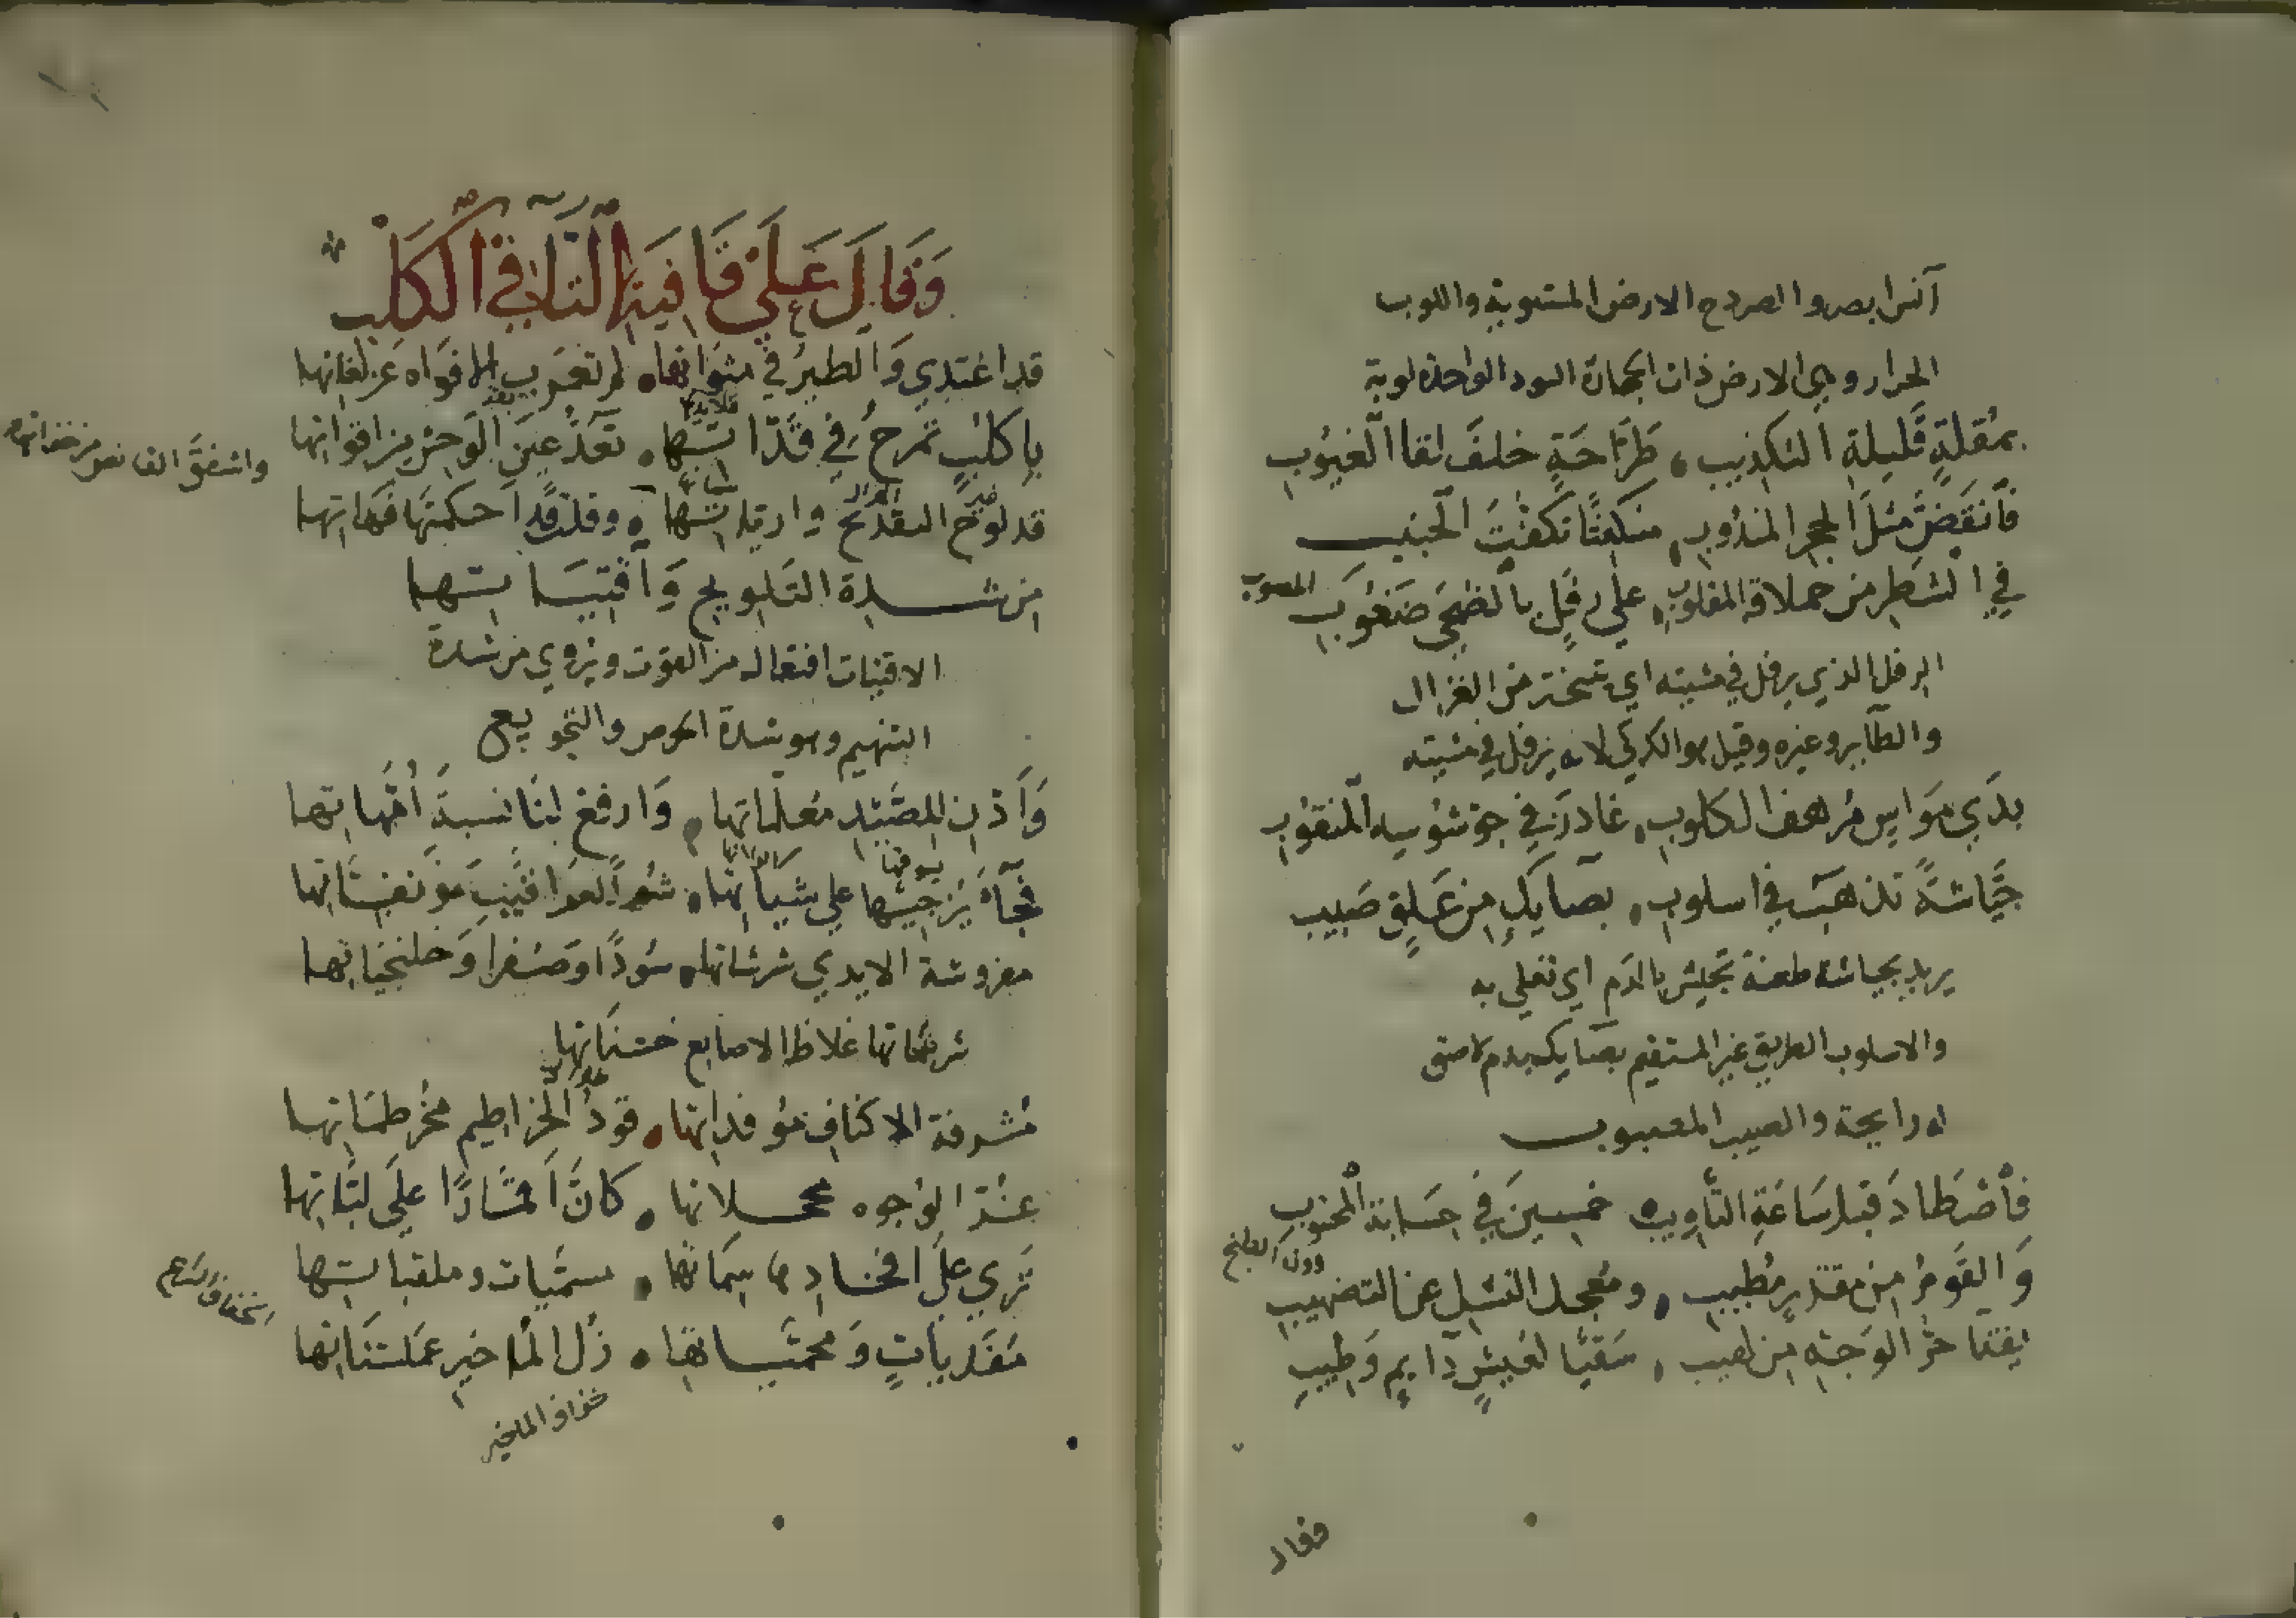 آنس ابصر والصردح الارض المستوية واللوب
الحرار وهي الارض ذات الحجارة السود الواحدة لوبة
بمُقلةٍ قَليلةِ التكذيب ، طَرّاحَةٍ خلفَ لقا الغيُوب
فانقَضَّ مثلَ الحجر المندُوب ، منكفتًا تكفُّتَ الجنيب
في الشطر من حملاقه المقلوب ، على رفَلٍ بالضحَى ضَغُوب
الرفل الذي يرفل في مشيته اي تبختر من الغزال
والطاير وغيره وقيل هو الكركي لانه يرفل في مشيته
بذي مَواسٍ مُرهف الكلوب ، غادرَ في جؤشوشه المنقوُب
جيّاشةً تذهَب في اسلوب ، بصايكٍ من عَلقٍ صَبيب
يريد بجياشة طعنة تجيش بالدم اي تغلي به
والاسلوب الطريق غير المستقيم بصايك بدم لاصق
له رايحة والصبيب المصبوب
فاصْطادَ قبل سَاعَةِ التأويب ، خمسينَ في حسَابة المحسُوب
وَالقَومُ من مقتدرٍ مُطيب ، ومُعجل النشل عن التضهيب
سَقيًا لعَيشٍ دايمٍ وَطيب
فقال
وَقَالَ عَلَى قافِيَةِ التَّاء في الكَلْب
قد اغتدي وَالطيرُ في مثوَاتها ، لم تعرب الافوَاه عن لغاتها
باكلُبٍ تمرحُ في قدّاتها ، تعدُّ عينَ الوَحش من اقواتها
قد لوّح التقديح وارياتها ، وقد احكمتها
من شدة التلويح وَاقتياتها
الاقتيات افتعال من القوت ويروي من شدة
التنهيم وهو شدة الحرص والتجويع
وَاَذن للصَّيد معلماتها ، وَارفع لنَا نسبةَ اُمَّهاتها
فجآءَ يُزجيها على شياتها ، شمَّ العراقيب مؤنفاتها
مفروشة الايدي شرنباتها ، سُودًا وصُفرا وَخلنجياتها
شرنباتها غلاظ الاصابع خشناتها
مُشرفة الاكتاف مُوفداتها ، قودُ الخراطيم مخُرطماتها
غُرّ الوُجوه محجلاتها ، كانَّ اَقمارًا علَى لبّاتها
تري علَى افخاذها سِمَاتها ، مسمَّيات وملقباتها
مُفَدياتٍ وَمحمَّياتها ، زُل المآخير عملسَّاتها
خفاف الماخير